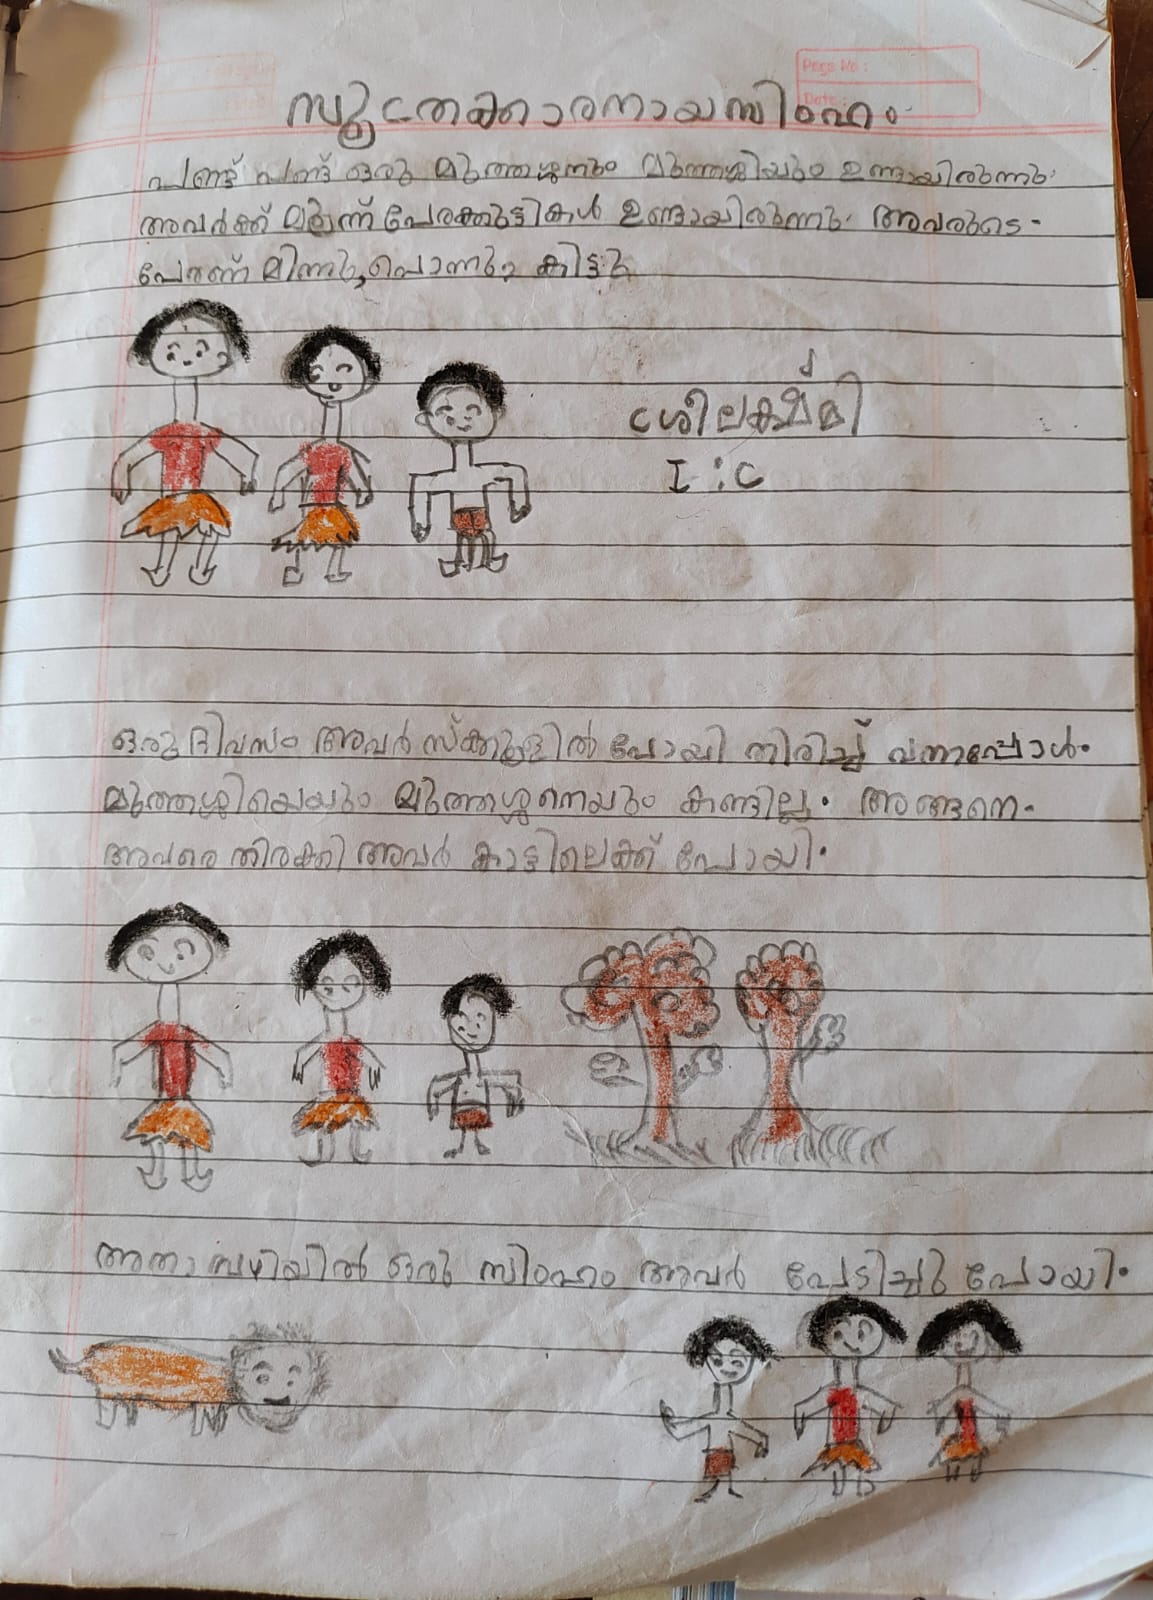 സൂത്രക്കാരനായസിംഹം
Page No :
Date :
പണ്ട് പണ്ട് ഒരു മുത്തശ്ശനും മുത്തശ്ശിയും ഉണ്ടായിരുന്നു.
അവർക്ക് മൂന്ന് പേരക്കുട്ടികൾ ഉണ്ടായിരുന്നു. അവരുടെ.
പേരണ് മിന്നു, പൊന്നു, കിട്ടു
ശ്രീലക്ഷ്മി
I : C
ഒരു ദിവസം അവർ സ്ക്കൂളിൽ പോയി തിരിച്ച് വന്നപ്പോൾ.
മുത്തശ്ശിയെയും മുത്തശ്ശനെയും കണ്ടില്ല. അങ്ങനെ.
അവരെ തിരക്കി അവർ കാട്ടിലെക്ക് പോയി.
അതാ വഴിയിൽ ഒരു സിംഹം അവർ പേടിച്ചു പോയി.